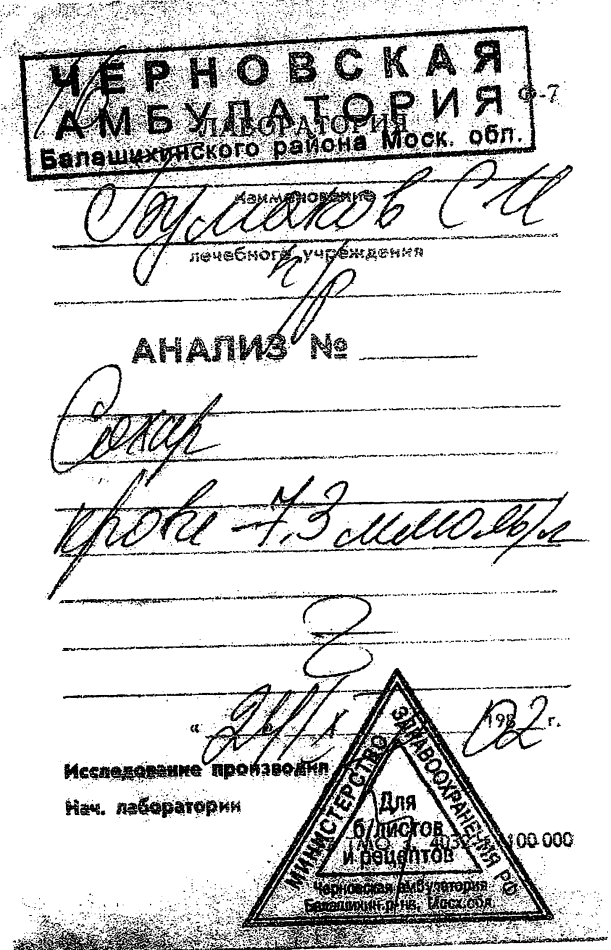 ЧЕРНОВСКАЯ
АМБУЛАТОРИЯ
Балашихинского района Моск. обл.
Ф-7
ЛАБОРАТОРИЯ
наименование
С И
лечебного учреждения
АНАЛИЗ №
Сахар
крови - 7,3 ммоль/л
" 24/IX 198 02 г.
Исследование производил
Нач. лаборатории
МИНИСТЕРСТВО ЗДРАВООХРАНЕНИЯ РФ
Для
б/листов
и рецептов
100 000
Черновская амбулатория
Балашихин. р-на, Моск. обл